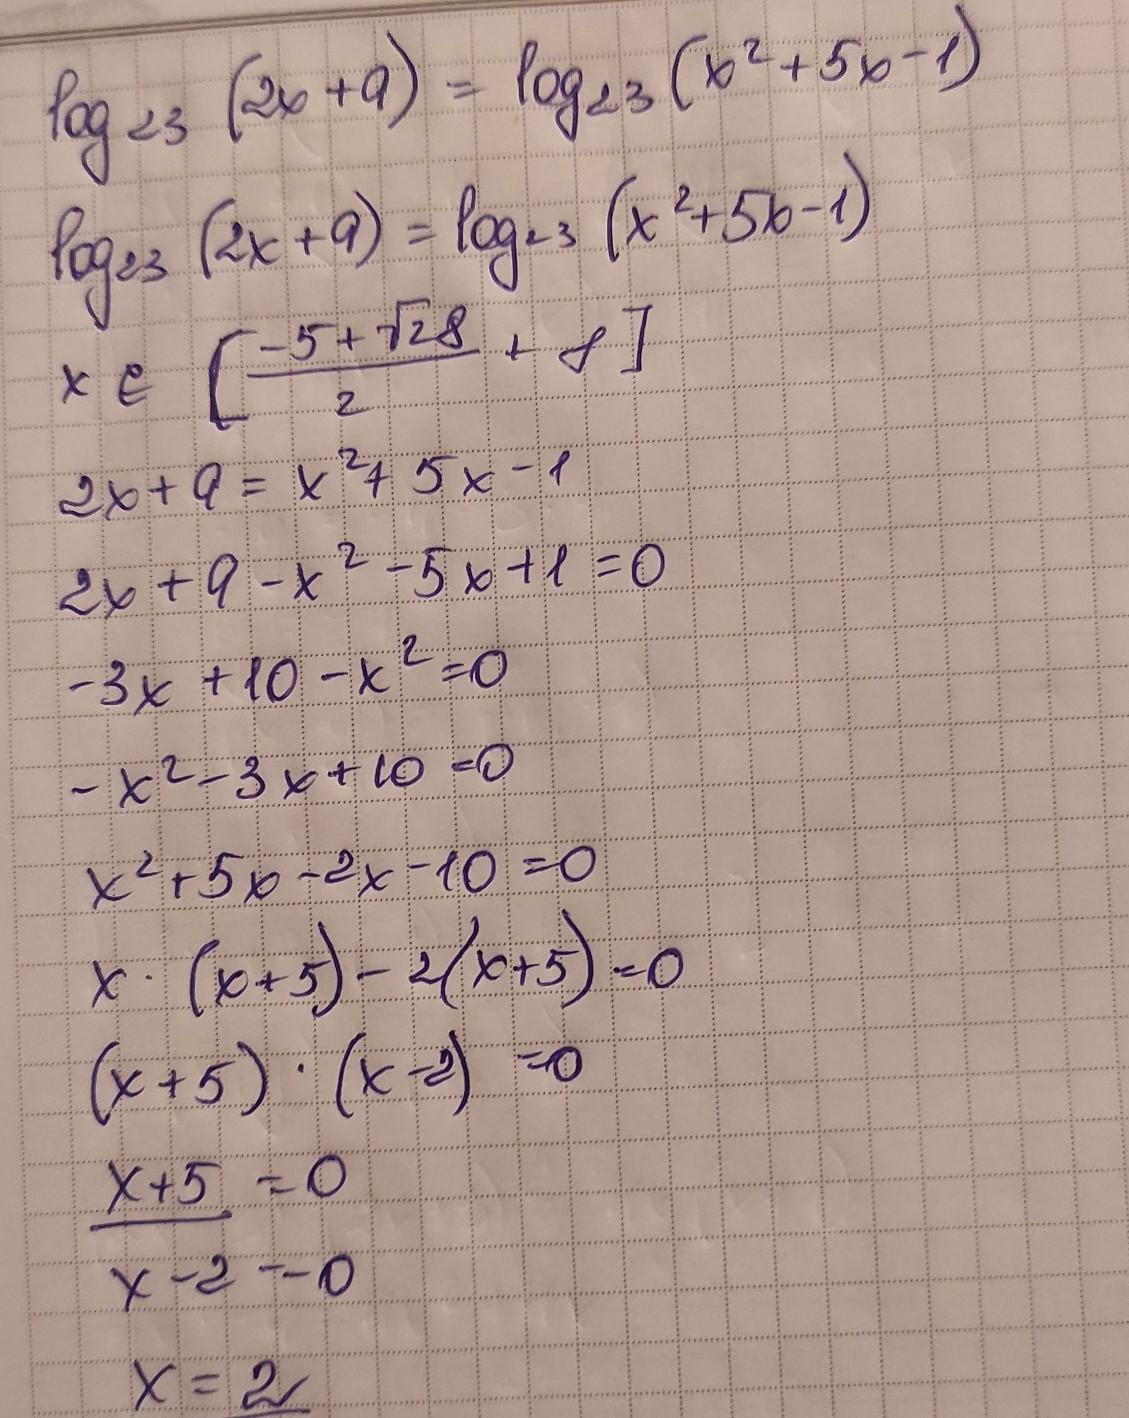 log₂₃ (2x+9) = log₂₃ (x²+5x-1)
log₂₃ (2x+9) = log₂₃ (x²+5x-1)
x ∈ [(-5+√28)/2 + 8]
2x+9 = x²+5x-1
2x+9-x²-5x+1=0
-3x+10-x²=0
-x²-3x+10=0
x²+5x-2x-10=0
x·(x+5)-2(x+5)=0
(x+5)·(x-2)=0
x+5=0
x-2=0
x=2